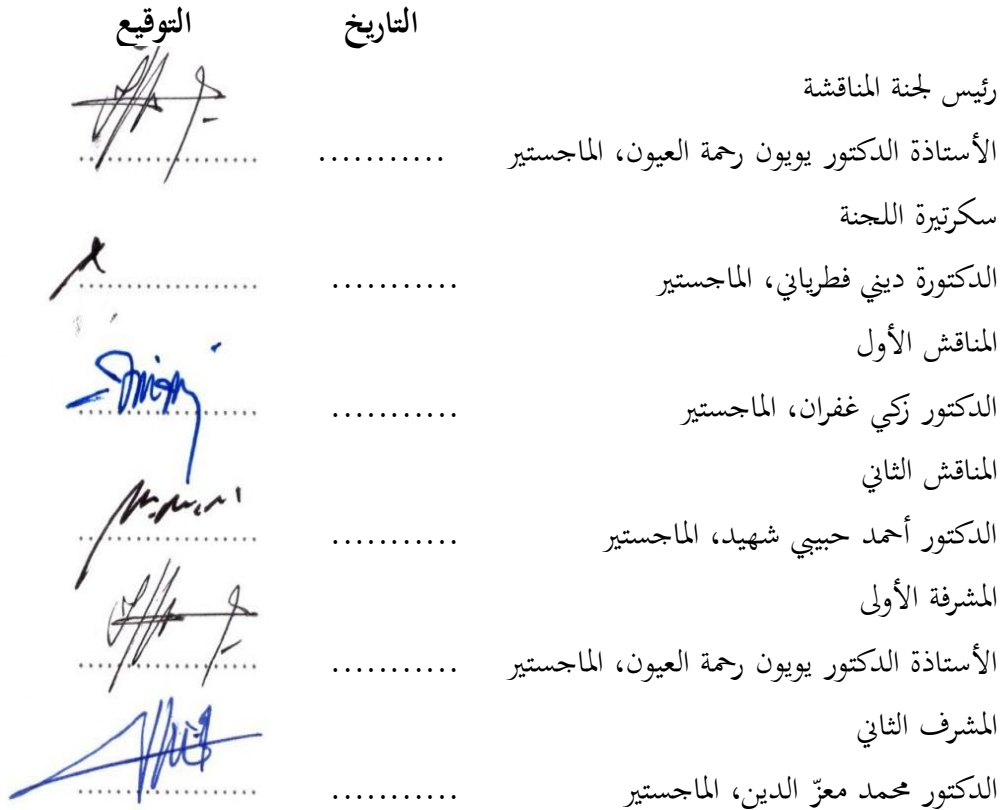 التاريخ التوقيع
رئيس لجنة المناقشة
الأستاذة الدكتور يويون رحمة العيون، الماجستير ........... ..................
سكرتيرة اللجنة
الدكتورة ديني فطرياني، الماجستير ........... ..................
المناقش الأول
الدكتور زكي غفران، الماجستير ........... ..................
المناقش الثاني
الدكتور أحمد حبيبي شهيد، الماجستير ........... ..................
المشرفة الأولى
الأستاذة الدكتور يويون رحمة العيون، الماجستير ........... ..................
المشرف الثاني
الدكتور محمد معزّ الدين، الماجستير ........... ..................